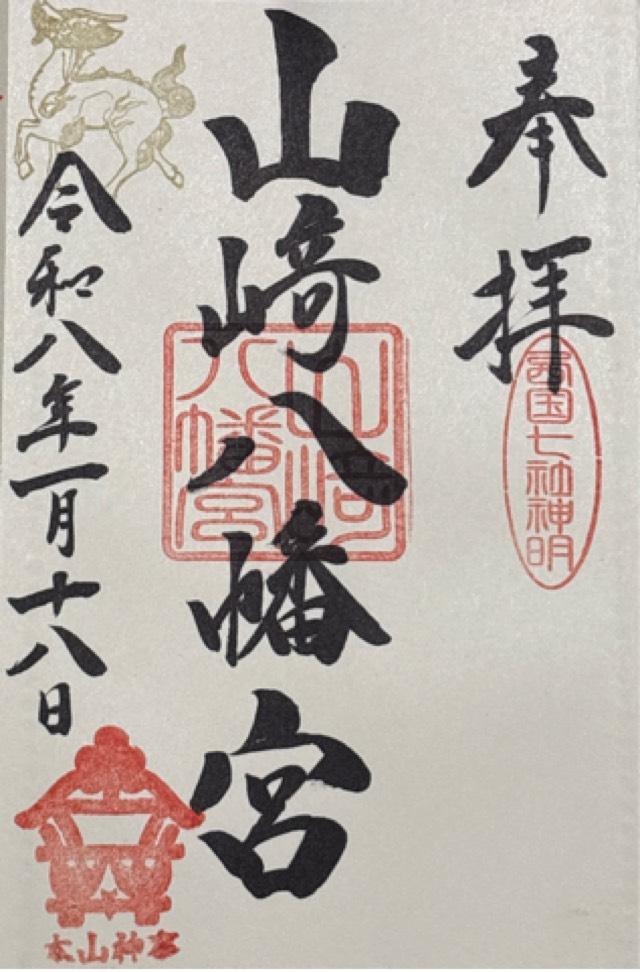 奉拝
国七神明
山﨑八幡宮
山崎八幡宮
令和八年一月十八日
本山神事